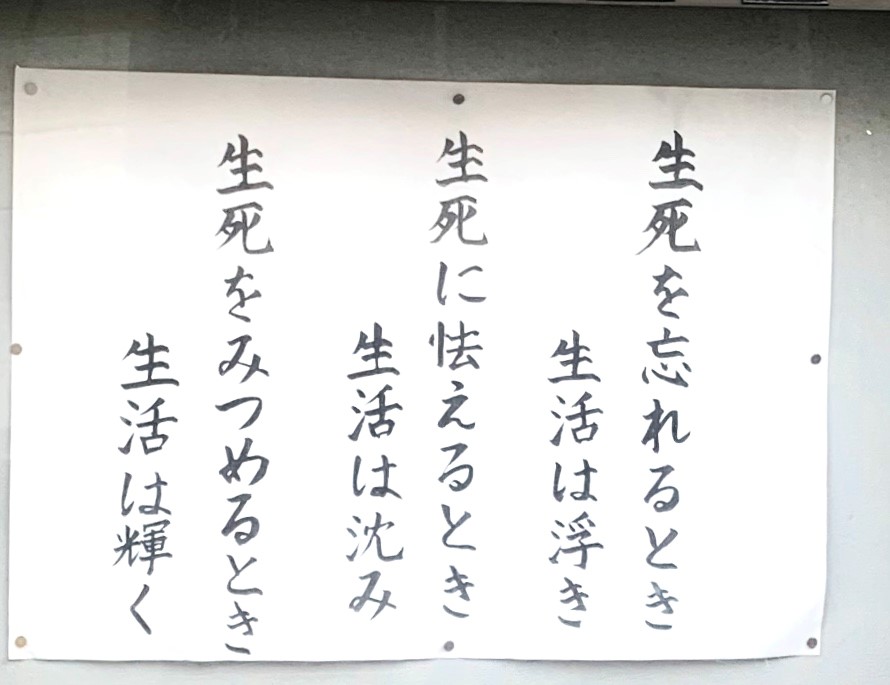 生死を忘れるとき
生活は浮き
生死に怯えるとき
生活は沈み
生死をみつめるとき
生活は輝く